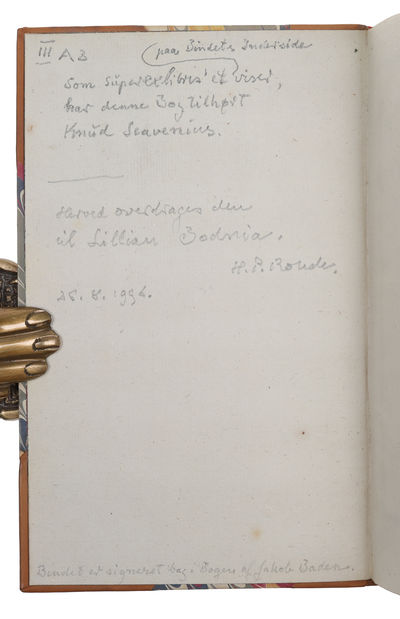 III A3
paa Bindets Inderside
Som Superexlibris'et viser,
har denne Bog tilhørt
Knud Scavenius.
Herved overdrages den
til Lillian Bodnia.
H. P. Rohde.
1994.
Bindet er signeret bag i Bogen af Jakob Baden.